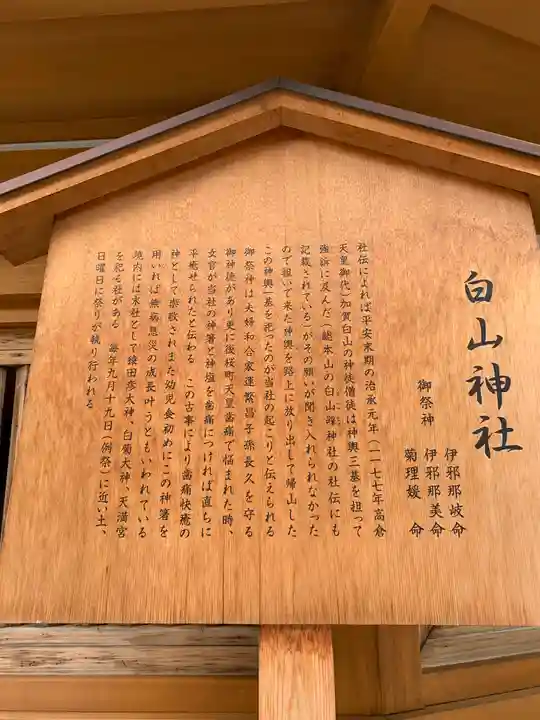 白山神社
御祭神
伊邪那岐命
伊邪那美命
菊理媛　命
社伝によれば平安末期の治承元年（一一七七年高倉
天皇御代）加賀白山の神徒僧徒は神輿三基を担って
強訴に及んだ（総本山の白山神社の社伝にも
記載されている）がその願いが聞き入れられなかった
ので担いで来た神輿を路上に放り出して帰山した
この神輿一基を祀ったのが当社の起こりと伝えられる
御祭神は夫婦和合家運繁昌子孫長久を守る
御神徳があり更に後桜町天皇歯痛で悩まれた時、
女官が当社の神箸と神塩を歯痛につければ直ちに
平癒せられたと伝わる　この古事により歯痛快癒の
神として崇敬されまた幼児食初めにこの神箸を
用いれば無病息災の成長叶うともいわれている
境内には末社として猿田彦大神、白菊大神、天満宮
を祀る社がある　毎年九月十九日（例祭）に近い土、
日曜日に祭りが執り行われる